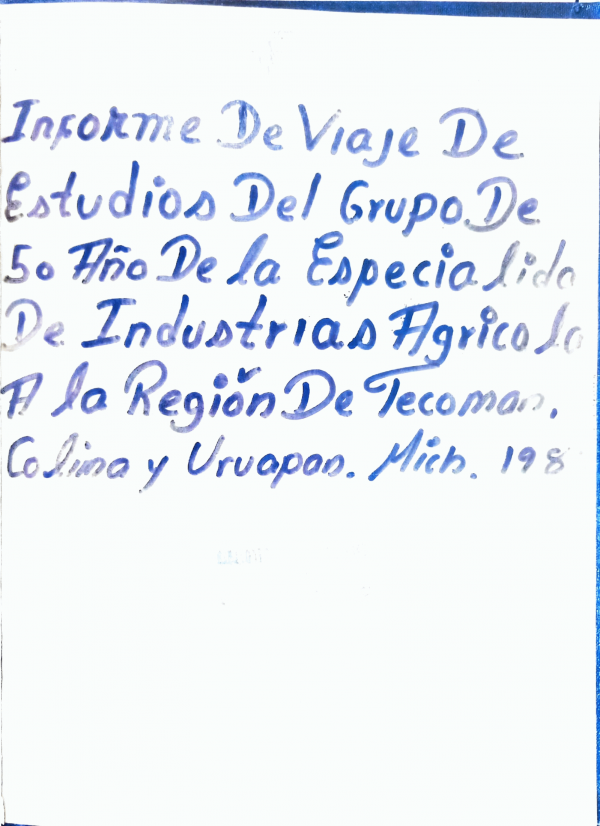 Informe De Viaje De
Estudios Del Grupo De
5o Año De la Especialida
De Industrias Agricola
A la Región De Tecoman,
Colima y Uruapan. Mich. 198